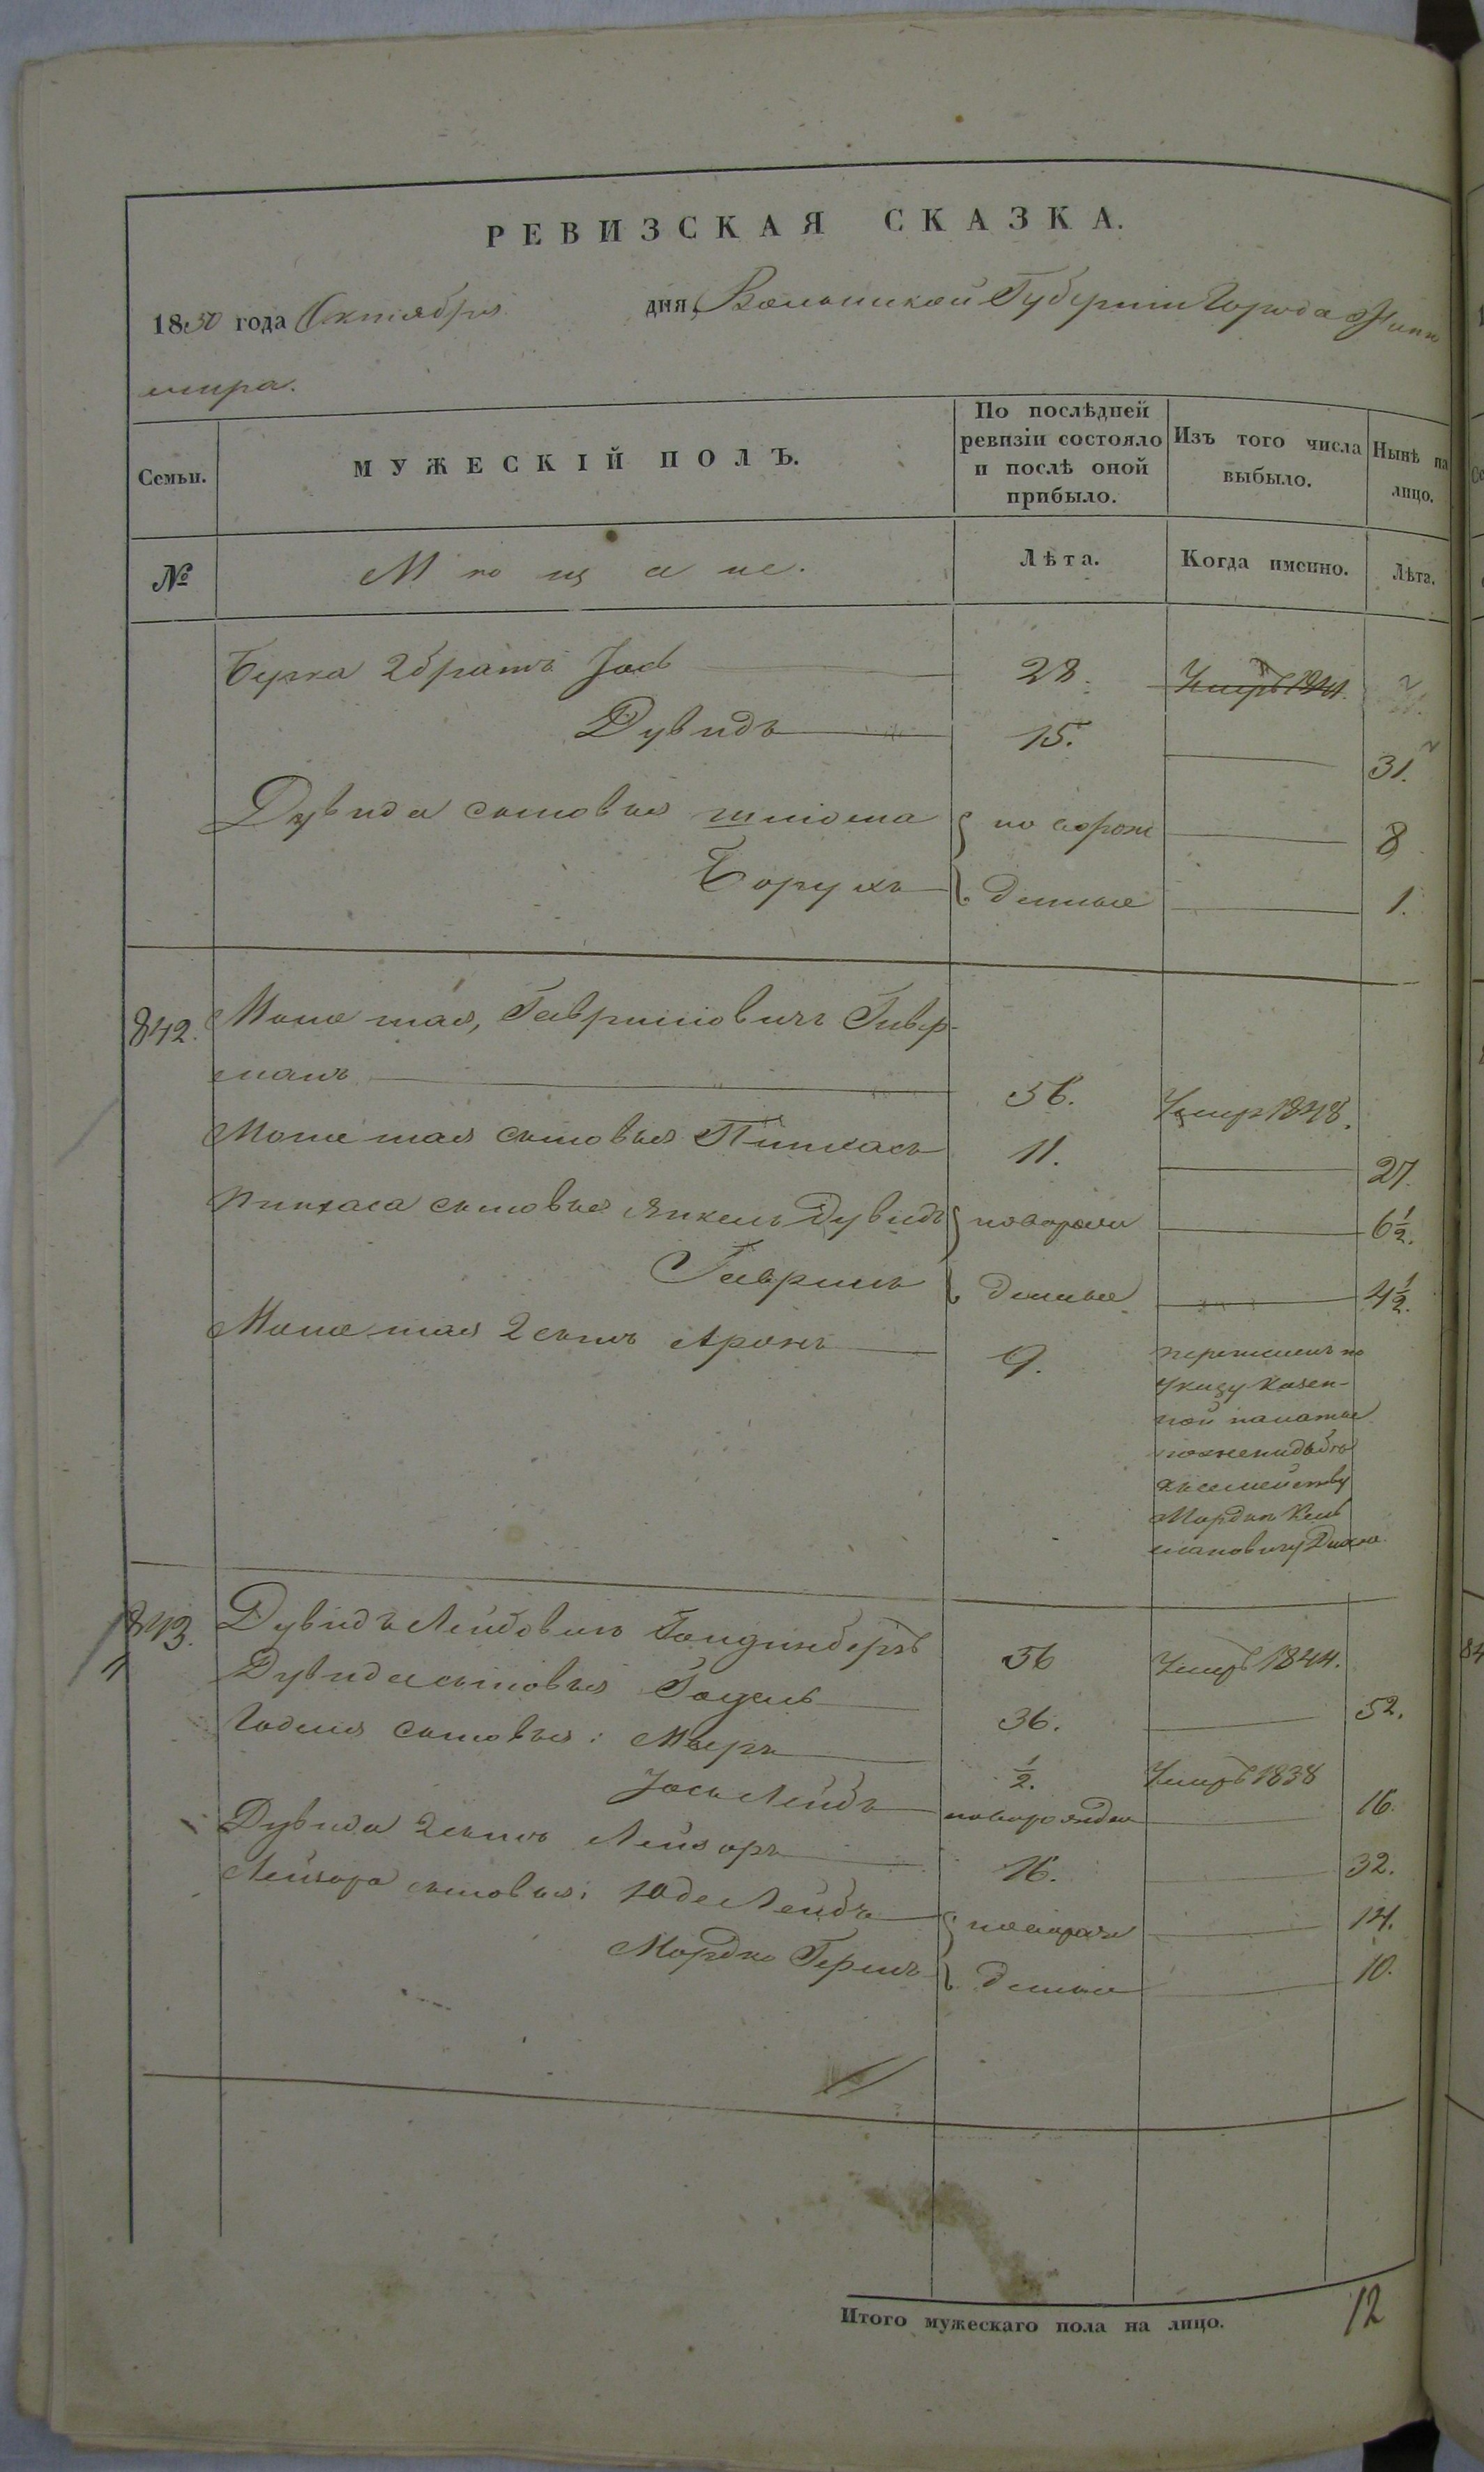 РЕВИЗСКАЯ СКАЗКА.
1850 года Октября дня Волынской Губернии Города Жито
мира.
Семьи. МУЖЕСКІЙ ПОЛЪ. По послѣдней ревизіи состояло и послѣ оной прибыло. Изъ того числа выбыло. Нынѣ на лицо.
№ Мѣщане. Лѣта. Когда имсино. Лѣта.
Берка 2 братъ Іось 28.
Дувидъ 15. 31.
Дувида сыновья Шліома по сорож 8
Борухъ денные 1.
842. Моше Гавриловичъ
манъ 56. Умеръ 1848.
Моше сыновья Пинхасъ 11. 27.
Пинхаса сыновья Янкель Дувидъ новорож 6½.
Гаврилъ денные 4½.
Моше 2 сынъ Аронъ 9. перечисленъ по
указу Казен-
ной палаты
къ семейству
Мордко
843. Дувидъ Лейбовичъ 56 Умеръ 1844.
Дувида сыновья Годель 36. 52.
Годеля сыновья: Мееръ ½. Умеръ 1838
Іось Лейбъ новорожден 16.
Дувида 2 сынъ Лейзоръ 16. 32.
Лейзора сыновья: Юде Лейбъ новорож 14.
Мордко Гершъ денные 10.
Итого мужескаго пола на лицо. 12